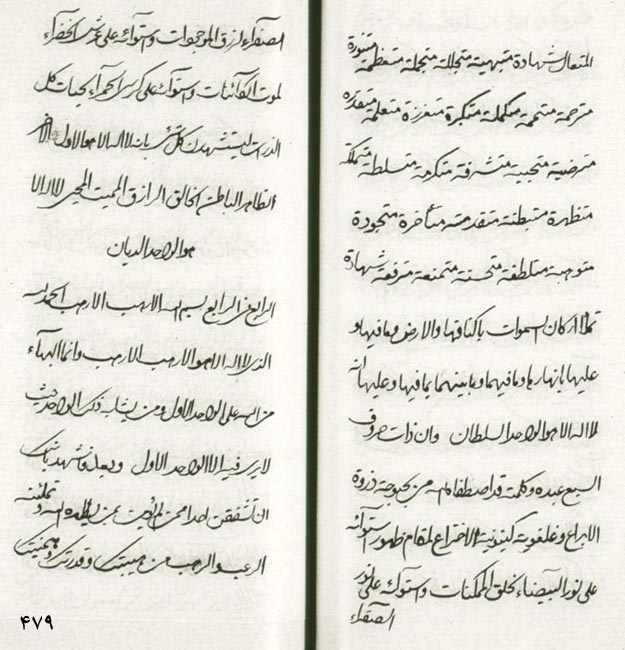 المتعال شهادة متبهية متجللة متجملة متعظمة متنورة
مترحمة متتممة متكملة متكبرة متعززة متعلمة متقدرة
مترضية متحببة متشرفة متكرمة متسلطة متملكة
متظهرة متبطنة متقدمة متأخرة متجودة
متوجهة متلطفة متحننة متمنعة مترفعة شهادة
تملأ اركان السموات باكنافها والارض وما فيها و
عليها بانهارها وما فيهما وما بينهما بما فيها وعليها انه
لا اله الا هو الواحد السلطان وان ذات حروف
السبع عبده وكلمته قد اصطفاه الله من بحبوحة ذروة
الابداع و كينونية الاختراع لمقام ظهور استوائه
على نور البيضاء بخلق الممكنات واستوائه على نور
الصفراء
الصفراء لرزق الموجودات واستوائه على عرش الخضراء
لموت الكائنات واستوائه على كرسي الحمراء لحيات كل
الذرات ليستشهدن كل شيء بانه لا اله الا هو الاول الآخر
الظاهر الباطن الخالق الرازق المميت المحيي لا اله الا
هو الواحد الديان
الرابع من الرابع بسم الله الارهب الارهب الحمد لله
الذي لا اله الا هو الارهب الارهب وانما البهاء
من الله على الواحد الاول ومن يشابه ذلك الواحد حيث
لا يرى فيه الا الواحد الاول وبعد فاشهد بانك
ان تشفقن احدا ممن لم يؤمن بمن يظهره الله و
الرعب والرهب من هيبتك وقدرتك
۴۷۹